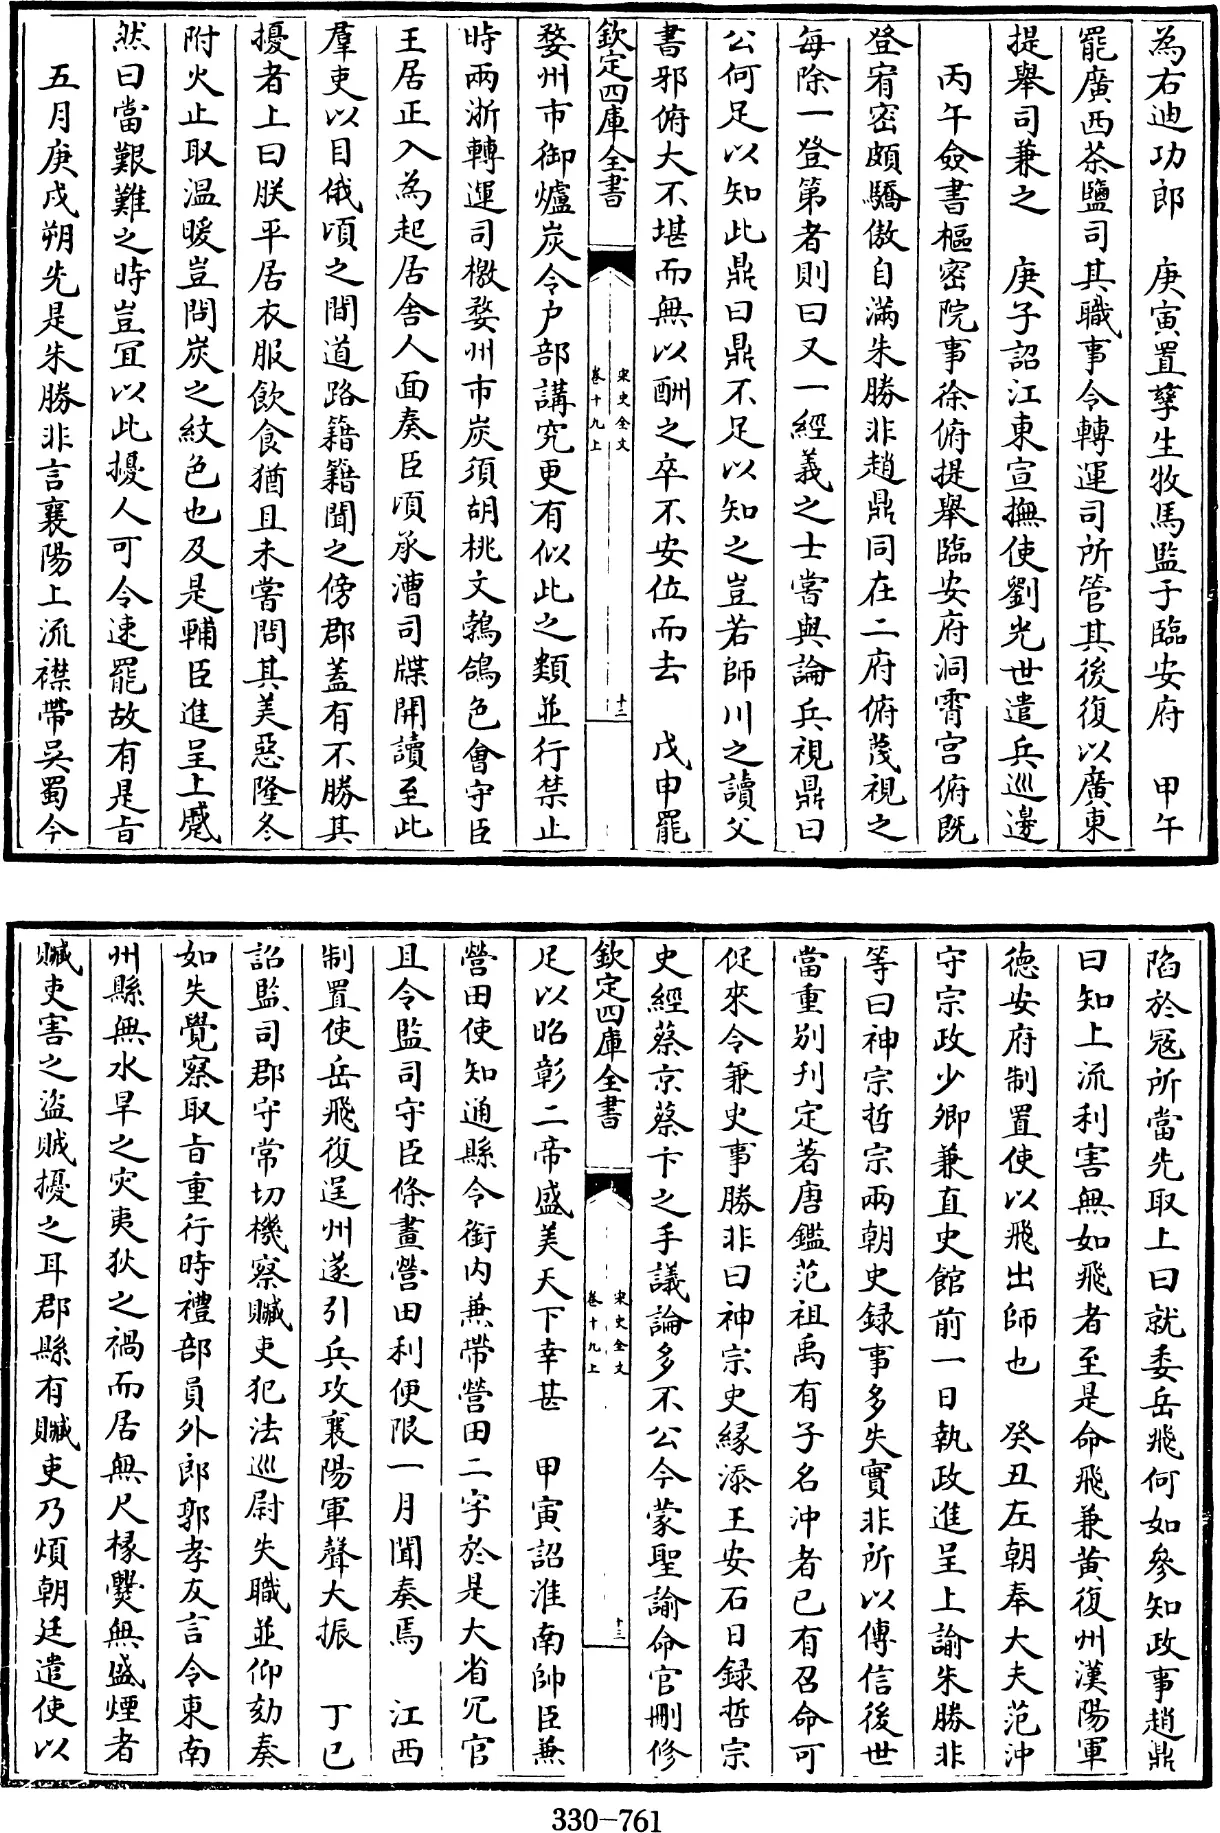 為右迪功郎　庚寅置孳生牧馬監于臨安府　甲午
罷廣西茶鹽司其職事令轉運司所管其後復以廣東
提舉司兼之　庚子詔江東宣撫使劉光世遣兵巡邊
丙午僉書樞密院事徐俯提舉臨安府洞霄宮俯既
登宥密頗驕傲自滿朱勝非趙鼎同在二府俯蔑視之
每除一登第者則曰又一經義之士嘗與論兵視鼎曰
公何足以知此鼎曰鼎不足以知之豈若師川之讀父
書邪俯大不堪而無以酬之卒不安位而去　戊申罷
欽定四庫全書
宋史全文
卷十九上
十二
婺州市御爐炭令户部講究更有似此之類並行禁止
時兩浙轉運司檄婺州市炭須胡桃文鵓鴿色會守臣
王居正入為起居舍人面奏臣頃承漕司牒開讀至此
羣吏以目俄頃之間道路籍籍聞之傍郡蓋有不勝其
擾者上曰朕平居衣服飲食猶且未嘗問其美惡隆冬
附火止取温暖豈問炭之紋色也及是輔臣進呈上慼
然曰當艱難之時豈宜以此擾人可令速罷故有是旨
五月庚戌朔先是朱勝非言襄陽上流襟帶吳蜀今
陷於寇所當先取上曰就委岳飛何如參知政事趙鼎
曰知上流利害無如飛者至是命飛兼黃復州漢陽軍
德安府制置使以飛出師也　癸丑左朝奉大夫范沖
守宗政少卿兼直史館前一日執政進呈上諭朱勝非
等曰神宗哲宗兩朝史録事多失實非所以傳信後世
當重别刋定著唐鑑范祖禹有子名沖者已有召命可
促來令兼史事勝非曰神宗史緣添王安石日録哲宗
史經蔡京蔡卞之手議論多不公今蒙聖諭命官刪修
欽定四庫全書
宋史全文
卷十九上
十三
足以昭彰二帝盛美天下幸甚　甲寅詔淮南帥臣兼
營田使知通縣令銜内兼帶營田二字於是大省冗官
且令監司守臣條畫營田利便限一月聞奏焉　江西
制置使岳飛復逞州遂引兵攻襄陽軍聲大振　丁巳
詔監司郡守常切機察贓吏犯法巡尉失職並仰劾奏
如失覺察取旨重行時禮部員外郎郭孝友言令東南
州縣無水旱之灾夷狄之禍而居無尺椽爨無盛煙者
贓吏害之盜賊擾之耳郡縣有贓吏乃煩朝廷遣使以
330-761